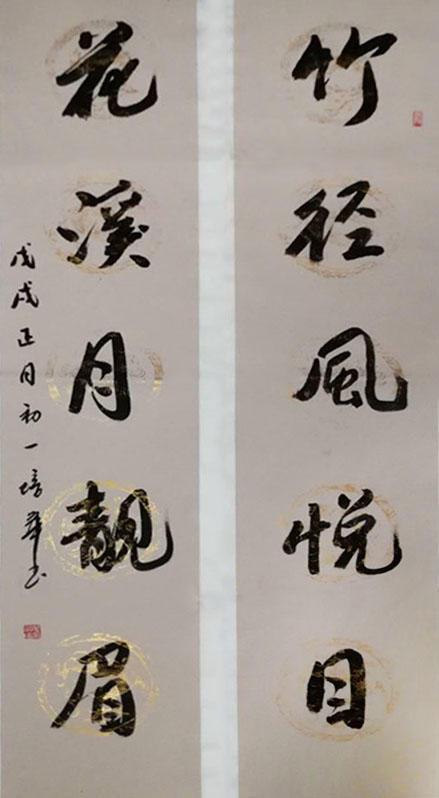 竹径風悦目
花溪月靓眉
戊戌正月初一培華书